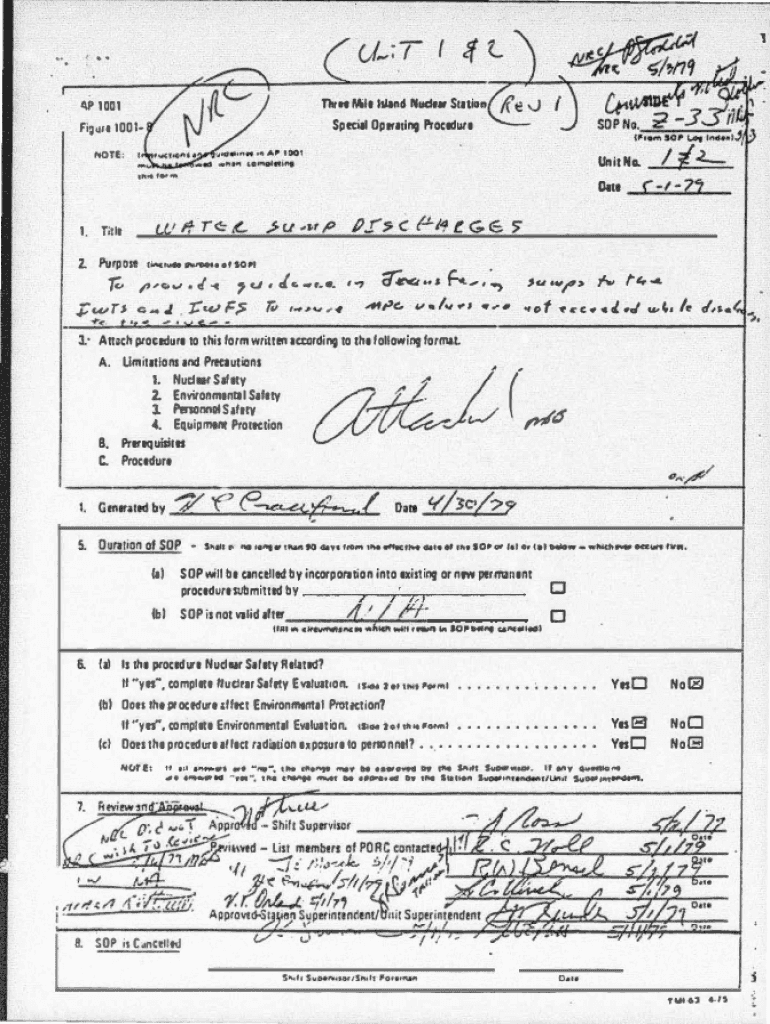 (UNIT 1 & 2)
NRC
5/3/79
NRC
AP 1001
Figure 1001-8
Three Mile Island Nuclear Station
(Rev 1)
Special Operating Procedure
Comments Noted
SOP No. Z-33
(From SOP Log Index)
NOTE: Instructions and guidelines in AP 1001
must be followed when completing
this form
Unit No. 1 & 2
Date 5-1-79
1. Title WATER SUMP DISCHARGES
2. Purpose (include purpose of SOP)
To provide guidance in Transfering sumps to the
IWTS and IWFS To insure MPC values are not exceeded while
to the river
3. Attach procedure to this form written according to the following format.
A. Limitations and Precautions
1. Nuclear Safety
2. Environmental Safety
3. Personnel Safety
4. Equipment Protection
B. Prerequisites
C. Procedure
Attached
1. Generated by H C Crawford Date 4/30/79
5. Duration of SOP - Shall be no longer than 90 days from the effective date of the SOP or (a) or (b) below - whichever occurs first.
(a) SOP will be cancelled by incorporation into existing or new permanent
procedure submitted by
(b) SOP is not valid after N/A
(fill in circumstances which will result in SOP being cancelled)
6. (a) Is the procedure Nuclear Safety Related?
If "yes", complete Nuclear Safety Evaluation. (Side 2 of this Form) Yes No
(b) Does the procedure affect Environmental Protection?
If "yes", complete Environmental Evaluation. (Side 2 of this Form) Yes No
(c) Does the procedure affect radiation exposure to personnel? Yes No
NOTE: If all answers are "no", the change may be approved by the Shift Supervisor. If any questions
are answered "yes", the change must be approved by the Station Superintendent/Unit Superintendent.
7. Review and Approval
NRC Did NOT
WISH TO Review
NA
Approved - Shift Supervisor Ross Date
Reviewed - List members of PORC contacted R.C. Noll 5/1/79 Date
5/1/79 Date
5/1/79 Date
5/1/79
Approved-Station Superintendent/Unit Superintendent 5/1/79 Date
Date
8. SOP is Cancelled
Shift Supervisor/Shift Foreman
Date
TMI-63 4-75